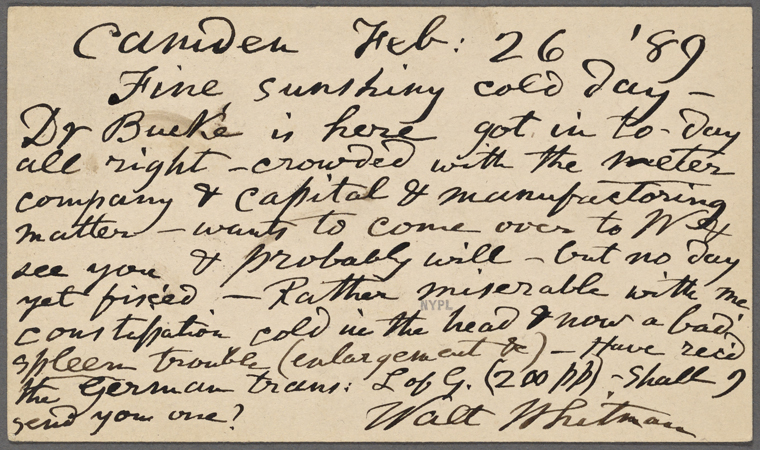 Camden Feb: 26 '89
Fine sunshiny cold day –
Dr Bucke is here got in to-day
all right – crowded with the meter
company & capital & manufactoring
matter – wants to come over to W &
see you & probably will – but no day
yet fixed – Rather miserable with me
constipation cold in the head & now a bad
spleen trouble (enlargement &c) – Have rec'd
the German trans: L of G. (200 pp) – Shall I
send you one? Walt Whitman
NYPL